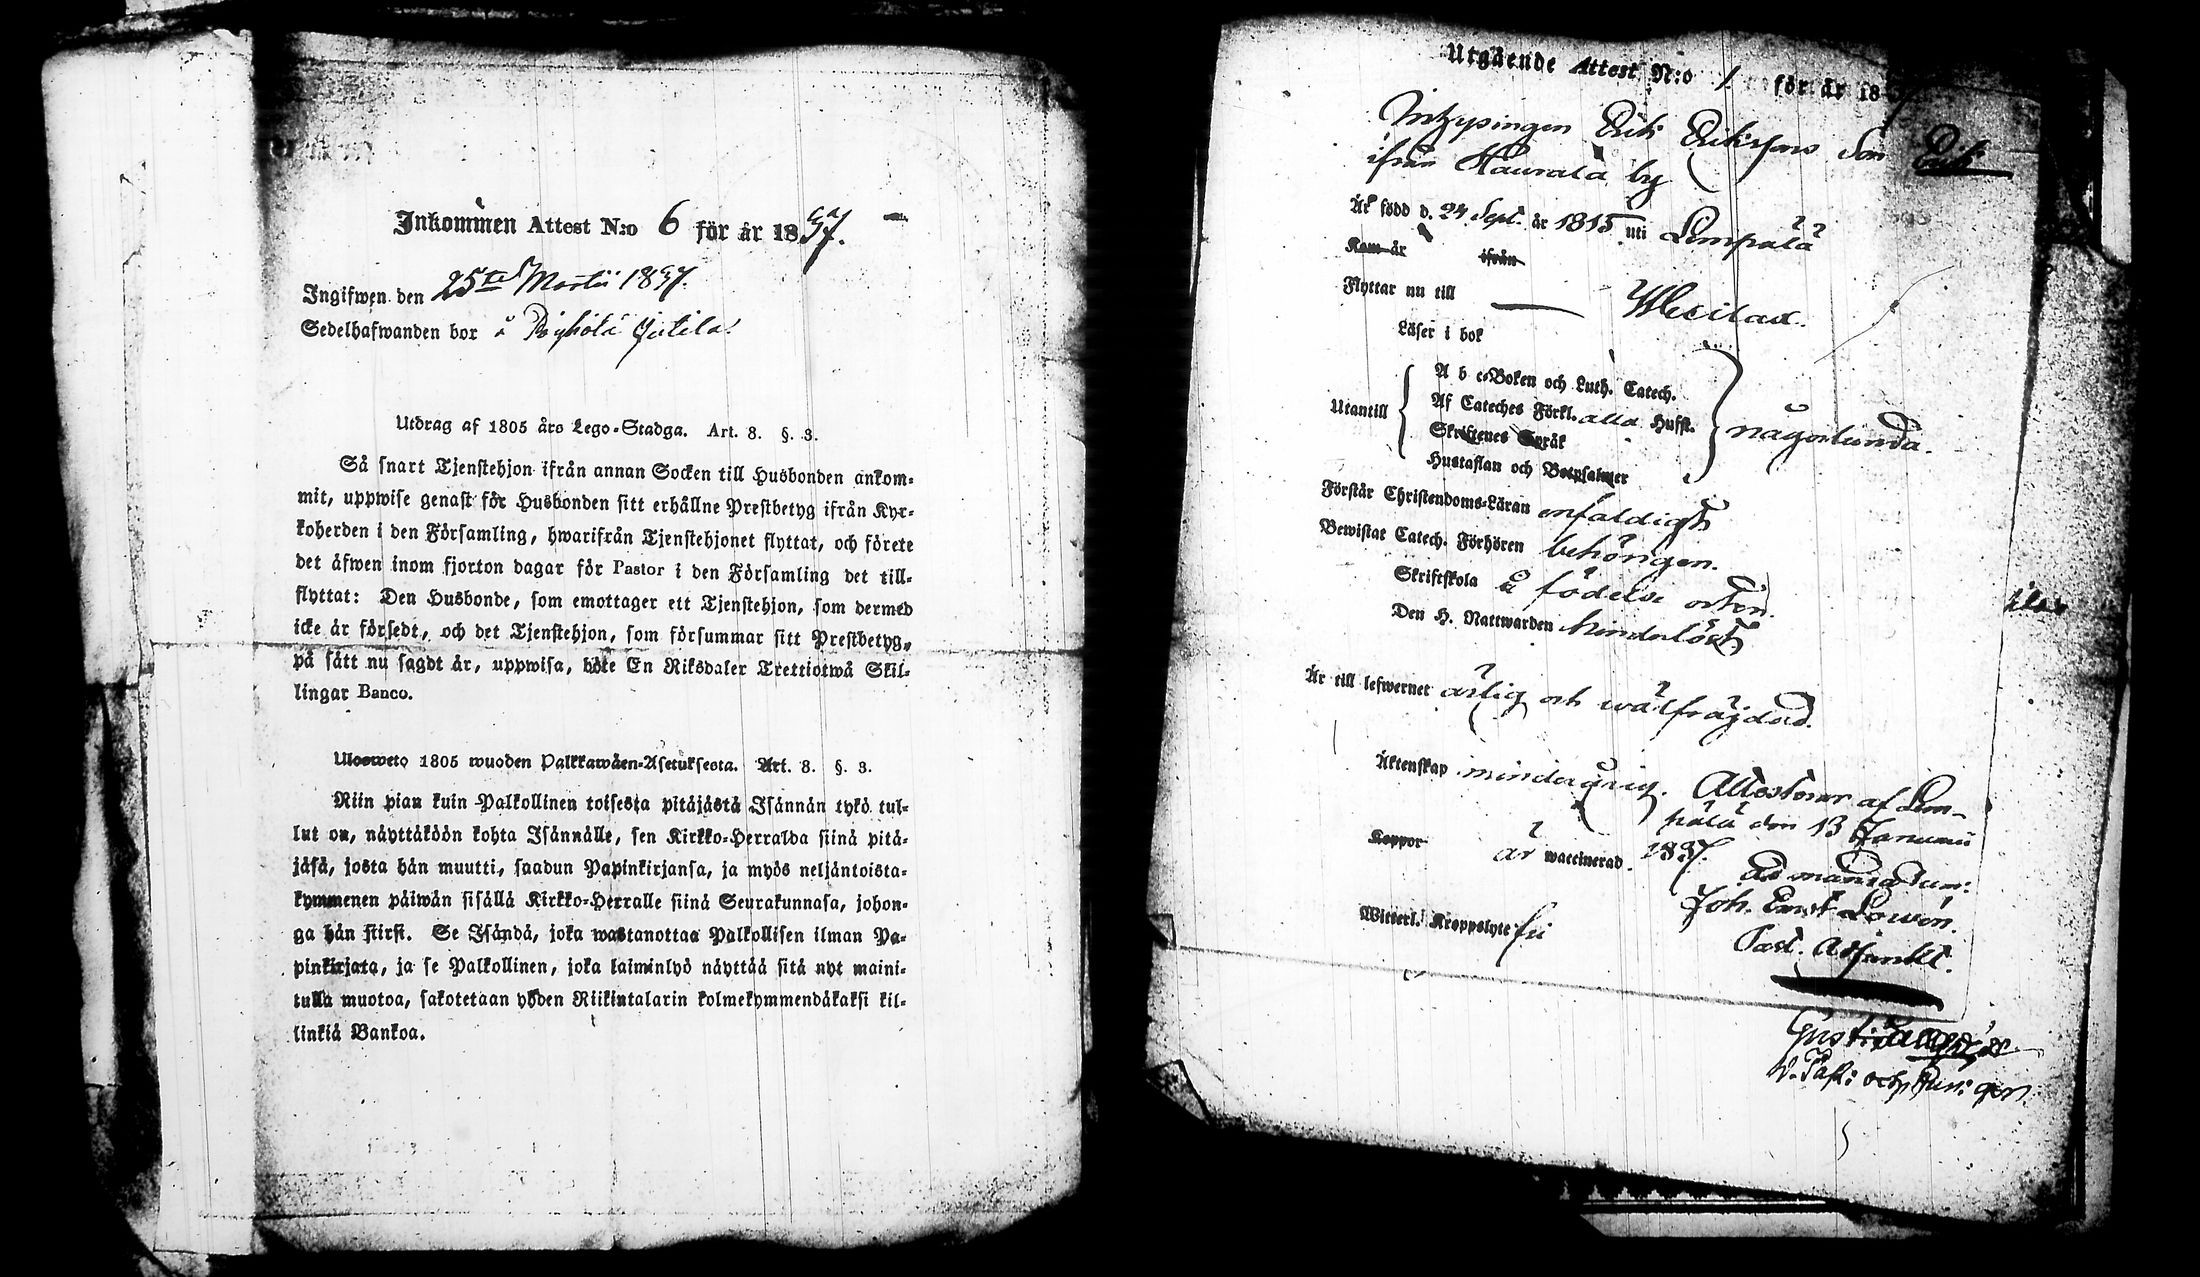 Inkommen Attest N:o 6 för år 1837.
Ingifwen den 25te Martii 1837.
Sedelhafwanden bor å
Utdrag af 1805 års Lego-Stadga. Art. 8. §. 3.
Så snart Tjenstehjon ifrån annan Socken till Husbonden ankom-
mit, uppwise genast för Husbonden sitt erhållne Prestbetyg ifrån Kyr-
koherden i den Församling, hwarifrån Tjenstehjonet flyttat, och förete
det äfwen inom fjorton dagar för Pastor i den Församling det till-
flyttat: Den Husbonde, som emottager ett Tjenstehjon, som dermed
icke är försedt, och det Tjenstehjon, som försummar sitt Prestbetyg,
på sätt nu sagdt är, uppwisa, böte En Riksdaler Trettiotwå Skil-
lingar Banco.
Ulosweto 1805 wuoden Palkkawäen-Asetuksesta. Art. 8. §. 3.
Niin pian kuin Palkollinen toisesta pitäjästä Isännän tykö tul-
lut on, näyttäköön kohta Isännälle, sen Kirkko-Herralda siinä pitä-
jäsä, josta hän muutti, saadun Papinkirjansa, ja myös neljäntoista-
kymmenen päiwän sisällä Kirkko-Herralle siinä Seurakunnasa, johon-
ga hän siirsi. Se Isändä, joka wastanottaa Palkollisen ilman Pa-
pinkirjata, ja se Palkollinen, joka laiminlyö näyttää sitä nyt maini-
tulla muotoa, sakotetaan yhden Riikintalarin kolmekymmendäkaksi kil-
linkiä Bankoa.
Utgående Attest N:o 1 för år 18
Inhysingen Erik Eriksons son Erik
ifrån Haurala by
Är född d. 24 Sept. år 1815 uti Lempälä
Kom år ifrån
Flyttar nu till Wesilax.
Läser i bok
A b c-Boken och Luth. Catech.
Utantill Af Cateches Förkl. alla Hufst. någorlunda.
Skriftenes Språk
Hustaflan och Botpsalmer
Förstår Christendoms-Läran enfaldigt
Bewistat Catech. Förhören behörigen.
Skriftskola å födelse orten.
Den H. Nattwarden hinderlöst
Är till lefwernet ärlig och wälfrägdad.
Äktenskap minderårig. Attesterar af Lem-
pälä den 13 Januarii
Koppor är waccinerad. 1837.
Ad mandatum:
Joh. Ernst Lowén.
Witterl. Kroppslyte fri
Past. Adjunkt.